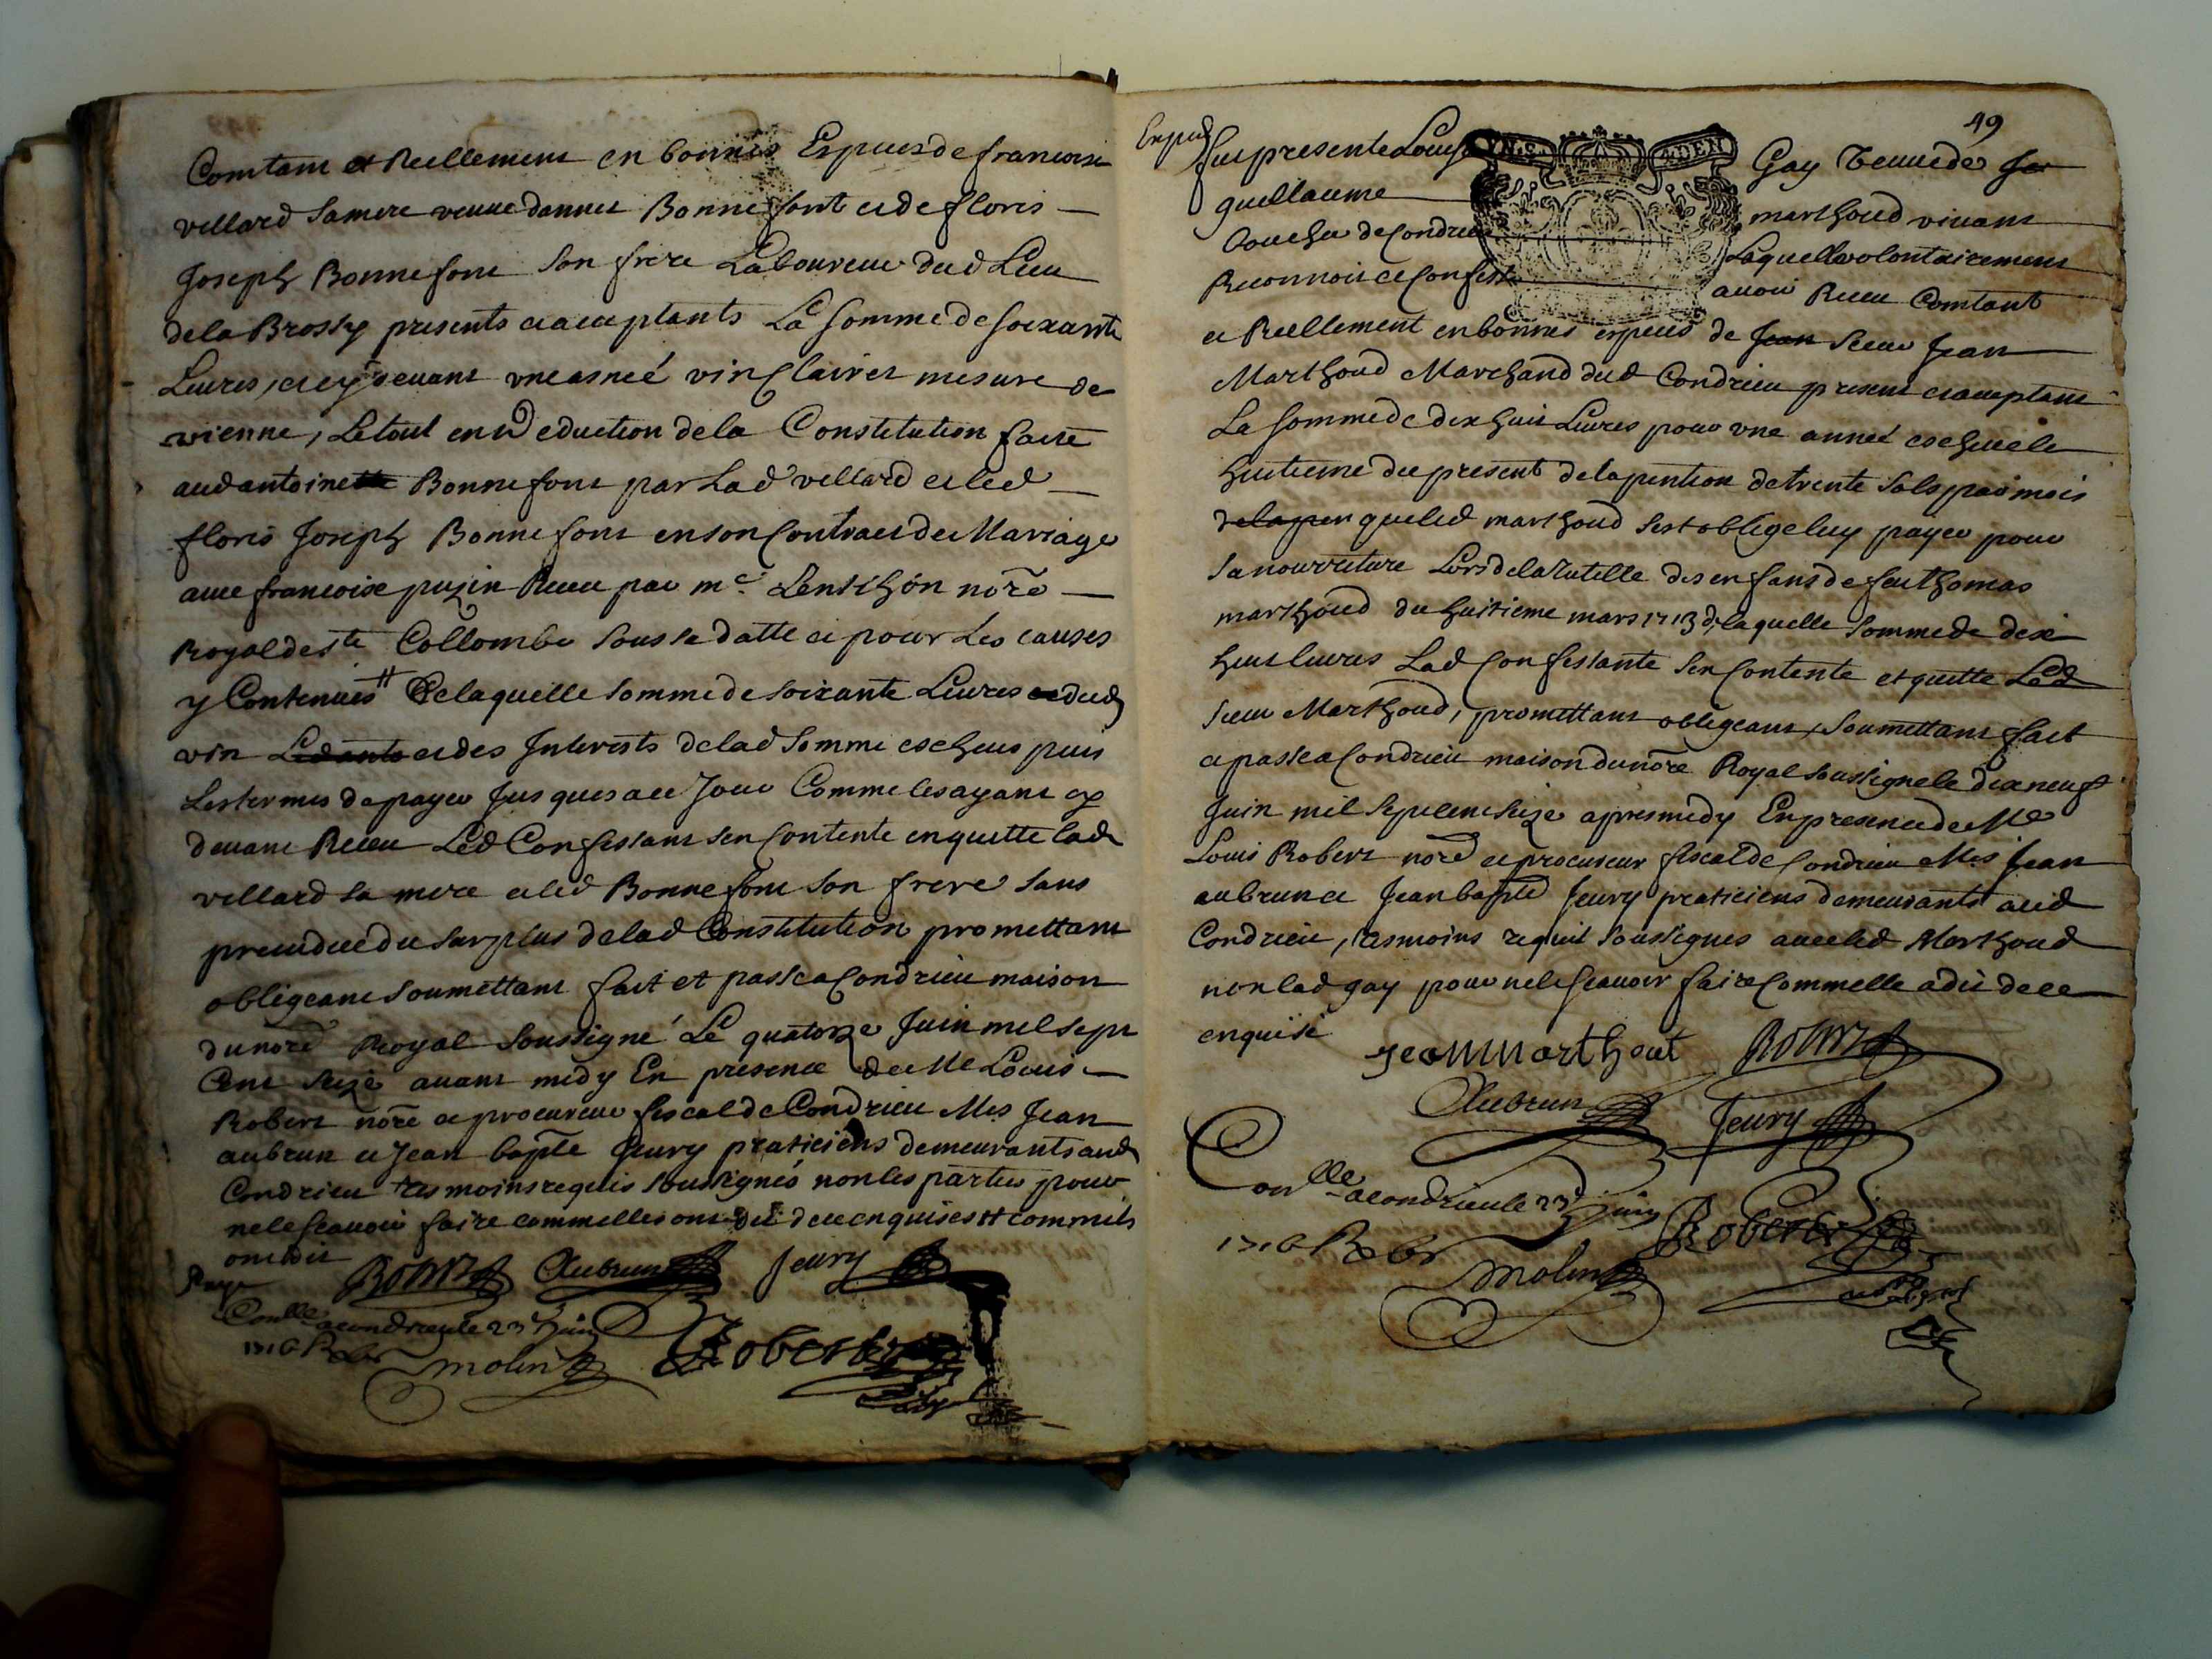 Comtant et Reellement en bonnes Espuces de francoise
vellard Samere veuve dannet Bonnefont et de floris
Joseph Bonnefont Son frere Laboureur dud Lieu
dela Brossy presents et aceptants La Somme de Soixante
Livres, et cy devant une asneé vin Clairet mesure de
vienne, Letout en Deduction dela Constitution faite
aud antoine Bonnefont par Lad vellard et led
floris Joseph Bonnefont en son Contract de Mariage
avec francoise puzin Receu par mc. Lentichon nore
Royal de ste Collombe Sous sa datte et pour Les causes
y Contenues De laquelle Somme de Soixante Livres dud
vin et des Interests delad Somme escheus puis
Les termes de payer Jusques a ce Jour Comme les ayant cy
devant Receu Led Confessant sen Contente en quitte lad
vellard sa mere et led Bonnefont Son frere Sans
preiudice du Surplus delad Constitution promettant
obligeant Soumettant fait et passé a Condrieu maison
du nore Royal Soussigné Le quatorze Juin mil sept
Cent Seize avant midy En presence de Me Louis
Robert nore et procureur fiscal de Condrieu Mes Jean
aubrun et Jean bapte Jeury praticiens demeurants aud
Condrieu tesmoins requis Soussignés non les parties pour
ne le scavoir faire comme elles ont dit de ce enquises
ont dit
Robert Aubrun Jeury
Conlle a condrieu le 23 Juin
1716 R
molin Robert
49
Fut presente Louise Gay veuve de
guillaume marthoud vivant
boucher de Condrieu Laquelle volontairement
Reconnoit et Confesse avoir Receu Comtant
et Reellement en bonnes espuces de Jean Sieur Jean
Marthoud Marchand dud Condrieu present et aceptant
La Somme de dix huit Livres pour une année escheue le
huitieme du present de la pention de trente Sols par mois
que led marthoud sest obligé luy payer pour
sa nourriture Lors de la tutelle des enfans de feu thomas
marthoud du huitieme mars 1713 de laquelle Somme de dix
huit livres Lad Confessante sen Contente et quitte Led
Sieur Marthoud, promettant obligeant, Soumettant fait
et passé a Condrieu maison du nore Royal Soussigné le dix neuf
Juin mil Sept cent Seize apres midy En presence de Me
Louis Robert nore et procureur fiscal de Condrieu Mes Jean
aubrun et Jean bapte Jeury praticiens demeurants aud
Condrieu, tesmoins requis Soussignes avec led Marthoud
non lad gay pour ne le scavoir faire Comme elle a dit de ce
enquise
Jean marthout Robert
Aubrun Jeury
Conlle a condrieu le 23 Juin
1716 R
molin Robert